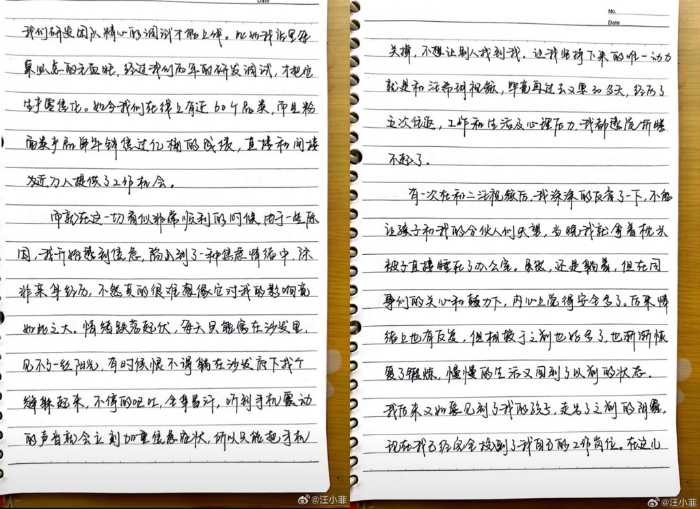 Date
我们研发团队精心的调试才能上线。比如我店里每
桌必点的元血旺，经过我们历年的研发调试，才把它
生产零售化。如今我们在线上有近60个品类，而且粉
面类产品每年销售过亿桶的成绩，直接和间接
为近万人提供了工作机会。
而就在这一切看似非常顺利的时候，由于一些原
因，我开始感到焦虑，陷入到了一种焦虑情绪中，除
非亲身经历，不然真的很难想像它对我的影响竟
如此之大。情绪跌落起伏，每天只能窝在沙发里，
见不了一丝阳光，有时候恨不得躺在沙发底下找个
缝躲起来，不停的呕吐，全身冒汗，听到手机震动
的声音就会立刻加重焦虑症状，所以只能把手机
No.
Date
关掉，不想让别人找到我。让我坚持下来的唯一动力
就是和汪希玥视频，毕竟再过去又要30多天，经历了
这次往返，工作和生活及心理压力，我都感觉有所
不起了。
有一次在和二汪视频后，我深深的反省了一下，不能
让孩子和我的合伙人们失望，当晚我就拿着枕头
被子直接睡在了办公室。虽然，还是躺着，但在同
事们的关心和鼓励下，内心上觉得安全多了。后来情
绪上也有反复，但相较于之前也好多了，也渐渐恢
复了锻炼，慢慢的生活又回到了以前的状态。
我后来又如愿见到了我的孩子，走出了之前的阴霾，
现在我已经完全投到了我自己的工作岗位。在这儿
@汪小菲
@汪小菲